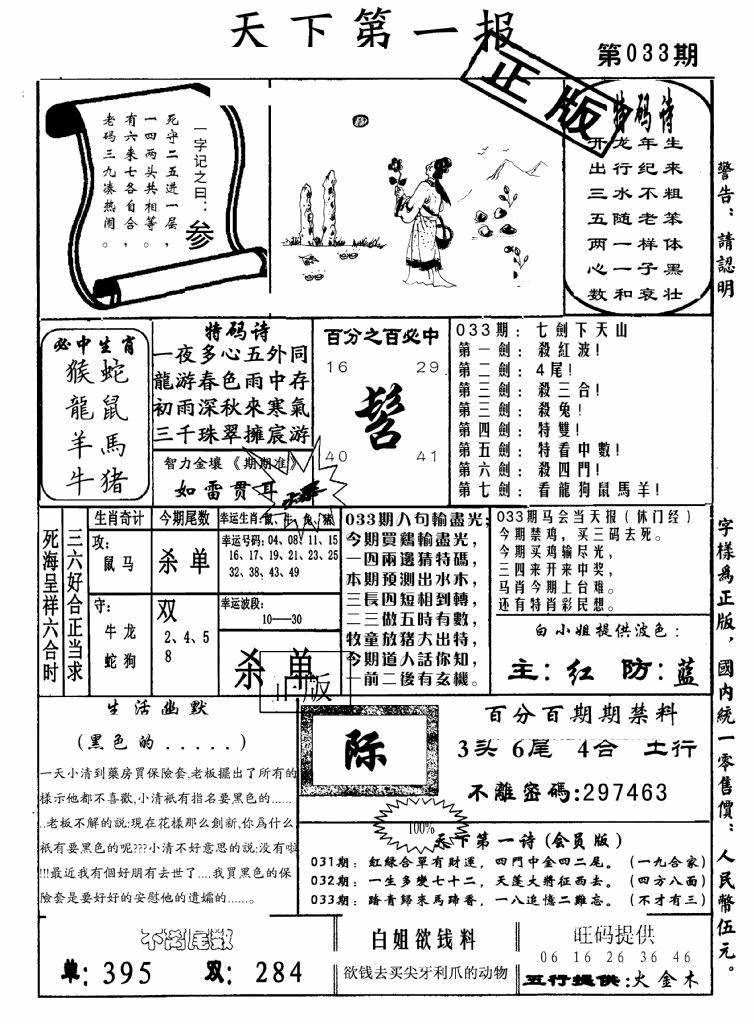 天下第一报
第033期
正版
一字记之曰：参
死守二五进一层，
一四两头共相等。
有六来七各自合，
老码三九凑热闹。
特码诗
开龙年生
出行纪来
三水不粗
五随老笨
两一样体
心一子黑
数和衰壮
警告：請認明
字樣為正版，國内統一零售價：人民幣伍元。
必中生肖
猴蛇
龍鼠
羊馬
牛猪
特码诗
一夜多心五外同
龍游春色雨中存
初雨深秋來寒氣
三千珠翠擁宸游
智力金壤《期期准》
如雷贯耳
百分之百必中
16 29
髻
40 41
033期：七劍下天山
第一劍：殺紅波！
第二劍：4尾！
第三劍：殺三合！
第三劍：殺兔！
第四劍：特雙！
第五劍：特看中數！
第六劍：殺四門！
第七劍：看龍狗鼠馬羊！
死海呈祥六合时
三六好合正当求
生肖奇计
攻：
鼠马
守：
牛龙
蛇狗
今期尾数
杀单
双
2、4、5
8
幸运生肖：鼠、牛、兔、猪
幸运号码：04、08、11、15
16、17、19、21、23、25
32、38、43、49
幸运波段：
10——30
杀单
正版
033期八句輸盡光；
今期買鷄輸盡光，
一四兩邊猜特碼，
本期預測出水木，
三長四短相到轉，
二三做五時有數，
牧童放猪大出特，
今期道人話你知，
一前二後有玄機。
033期马会当天报（休门经）
今期禁鸡，买三码去死。
今期买鸡输尽光，
三四来开来中奖，
马肖今期上台难。
还有特肖彩民想。
白小姐提供波色：
主：红 防：蓝
生活幽默
（黑色的......）
一天小清到藥房買保險套,老板擺出了所有的
樣示他都不喜歡,小清衹有指名要黑色的......
..老板不解的説:現在花樣那么創新,你爲什么
衹有要黑色的呢???小清不好意思的説:没有啦
!!!最近我有個好朋友去世了....我買黑色的保
險套是要好好的安慰他的遺孀的......。
际
百分百期期禁料
3头 6尾 4合 土行
不離密碼:297463
100%
天下第一诗(会员版)
031期：紅緑合單有財運，四門中金四二尾。（一九合家）
032期：一生多變七十二，天蓬大將征西去。（四方八面）
033期：踏青歸來馬蹄香，一八追憶二難忘。（不才有三）
单：395 双：284
白姐欲钱料
欲钱去买尖牙利爪的动物
旺码提供
06 16 26 36 46
五行提供:火金木